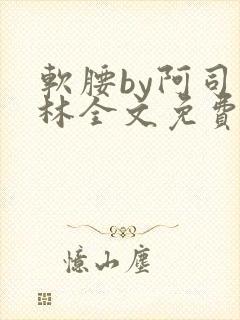 軟腰by阿司
林全文免費
憶山塵